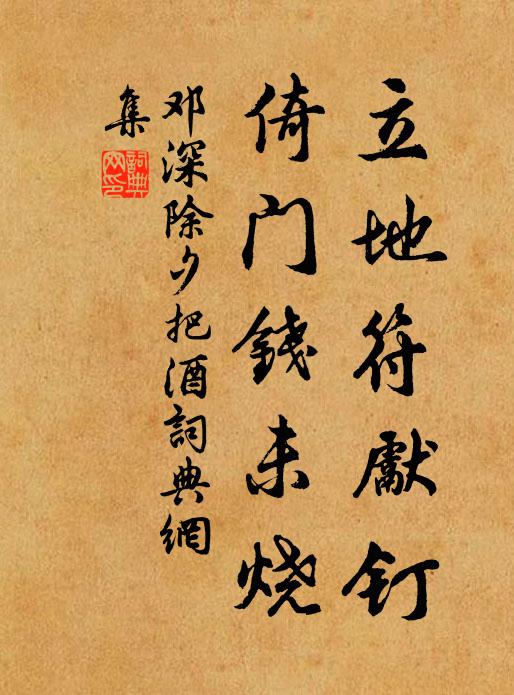 立地符獻钉
倚门錢未烧
邓深除夕把酒詞典網
集
詞典网印